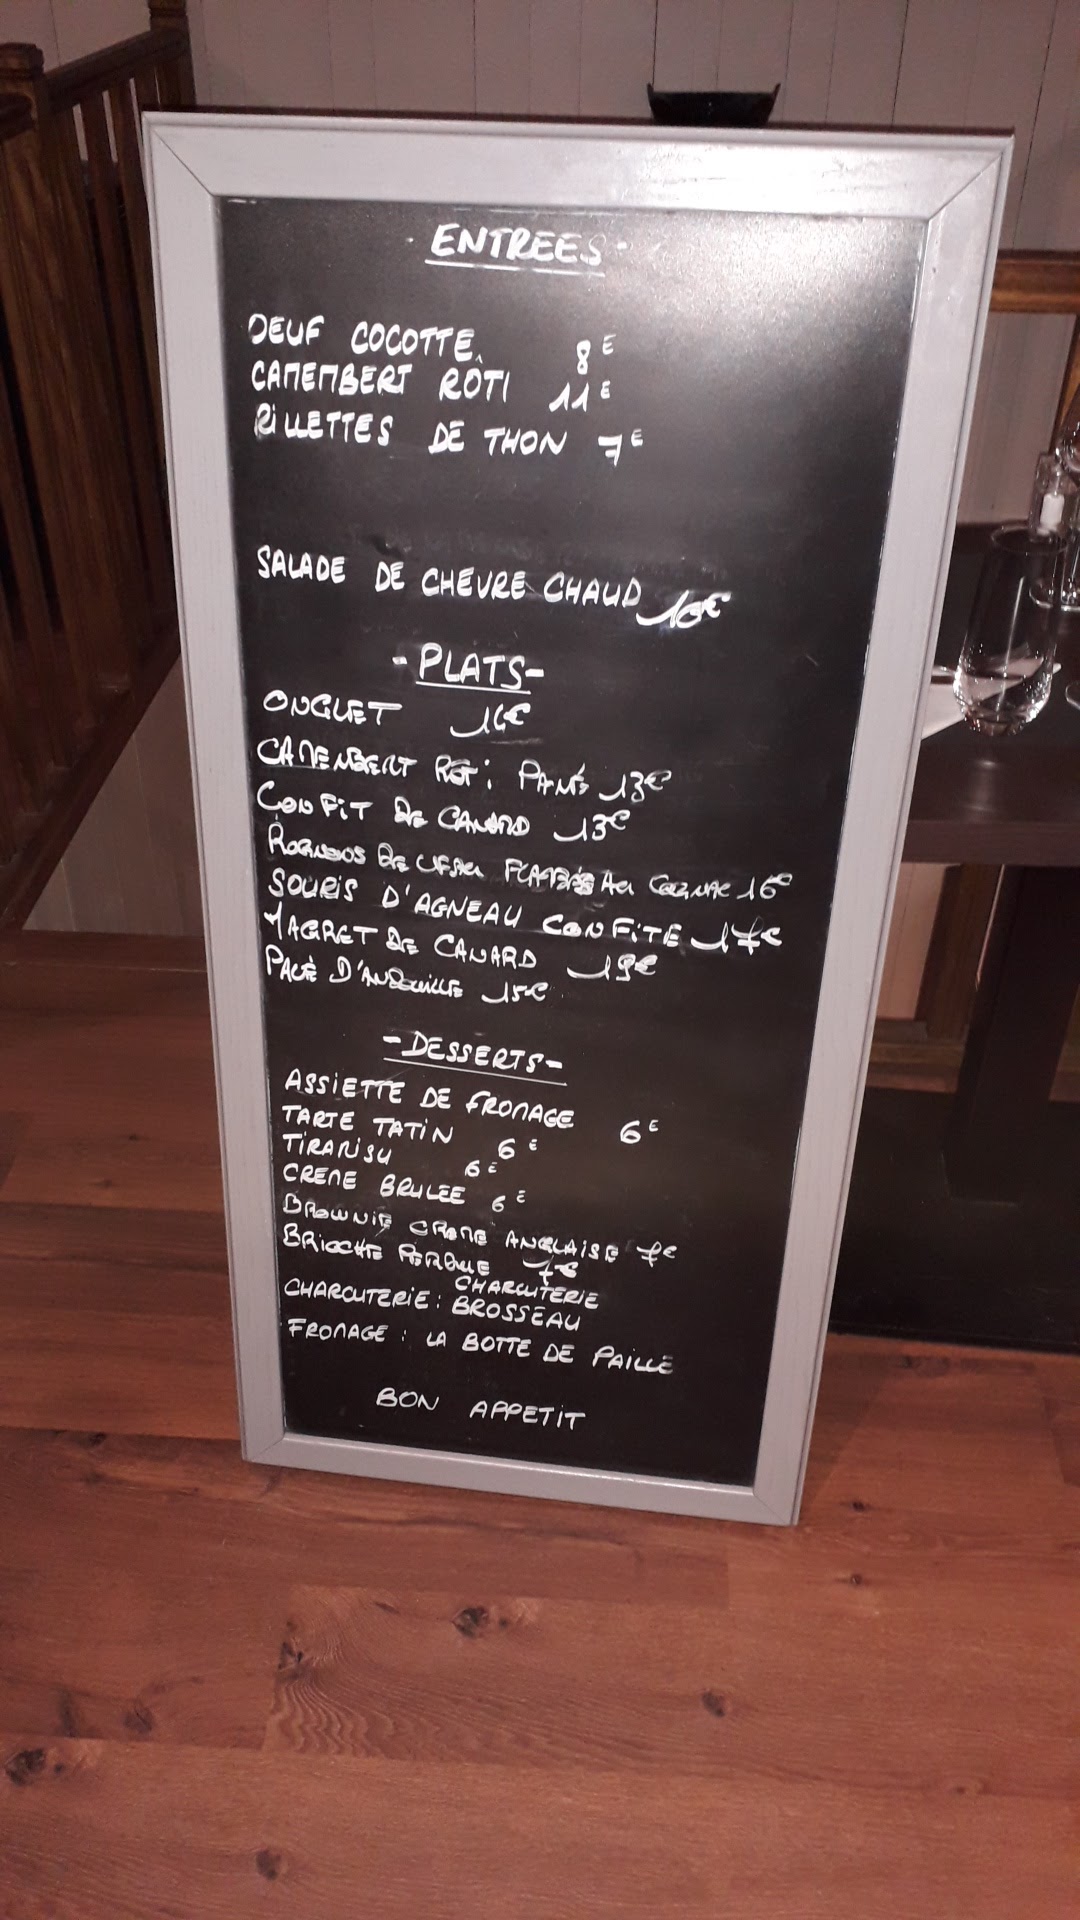 - ENTREES -
OEUF COCOTTE 8E
CAMEMBERT RÔTI 11E
RILLETTES DE THON 7E
SALADE DE CHEVRE CHAUD 10€
- PLATS -
ONGLET 16€
CAMEMBERT RÔTi PANÉ 13€
CONFiT DE CANARD 13€
ROGNONS DE FLAMBÉS AU COGNAC 16€
SOURIS D'AGNEAU CONFiTE 17€
MAGRET DE CANARD 19€
PAVÉ D'ANDOUiLLE 15€
- DESSERTS -
ASSiETTE DE FROMAGE 6E
TARTE TATiN 6E
TiRAMiSU 6E
CREME BRULEE 6E
BROWNiE CREME ANGLAISE 7€
BRIOCHE PERDUE 7€
CHARCUTERIE : CHARCUTERIE
BROSSEAU
FROMAGE : LA BOTTE DE PAILLE
BON APPETiT